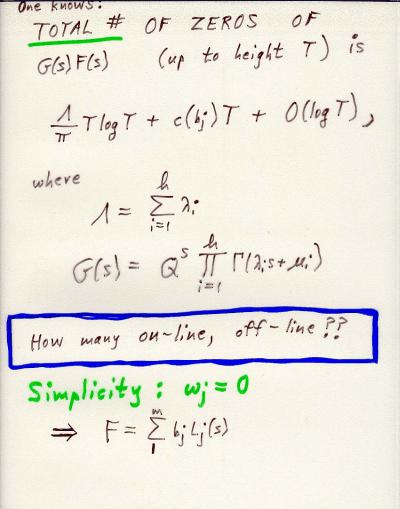 One knows:
TOTAL # OF ZEROS OF
G(s)F(s) (up to height T) is
Λ/π T log T + c(bj)T + O(log T),
where
Λ = ∑_{i=1}^{h} λi
G(s) = Q^s ∏_{i=1}^{h} Γ(λis+μi)
How many on-line, off-line??
Simplicity: ωj = 0
⇒ F = ∑_{1}^{m} bj Lj(s)